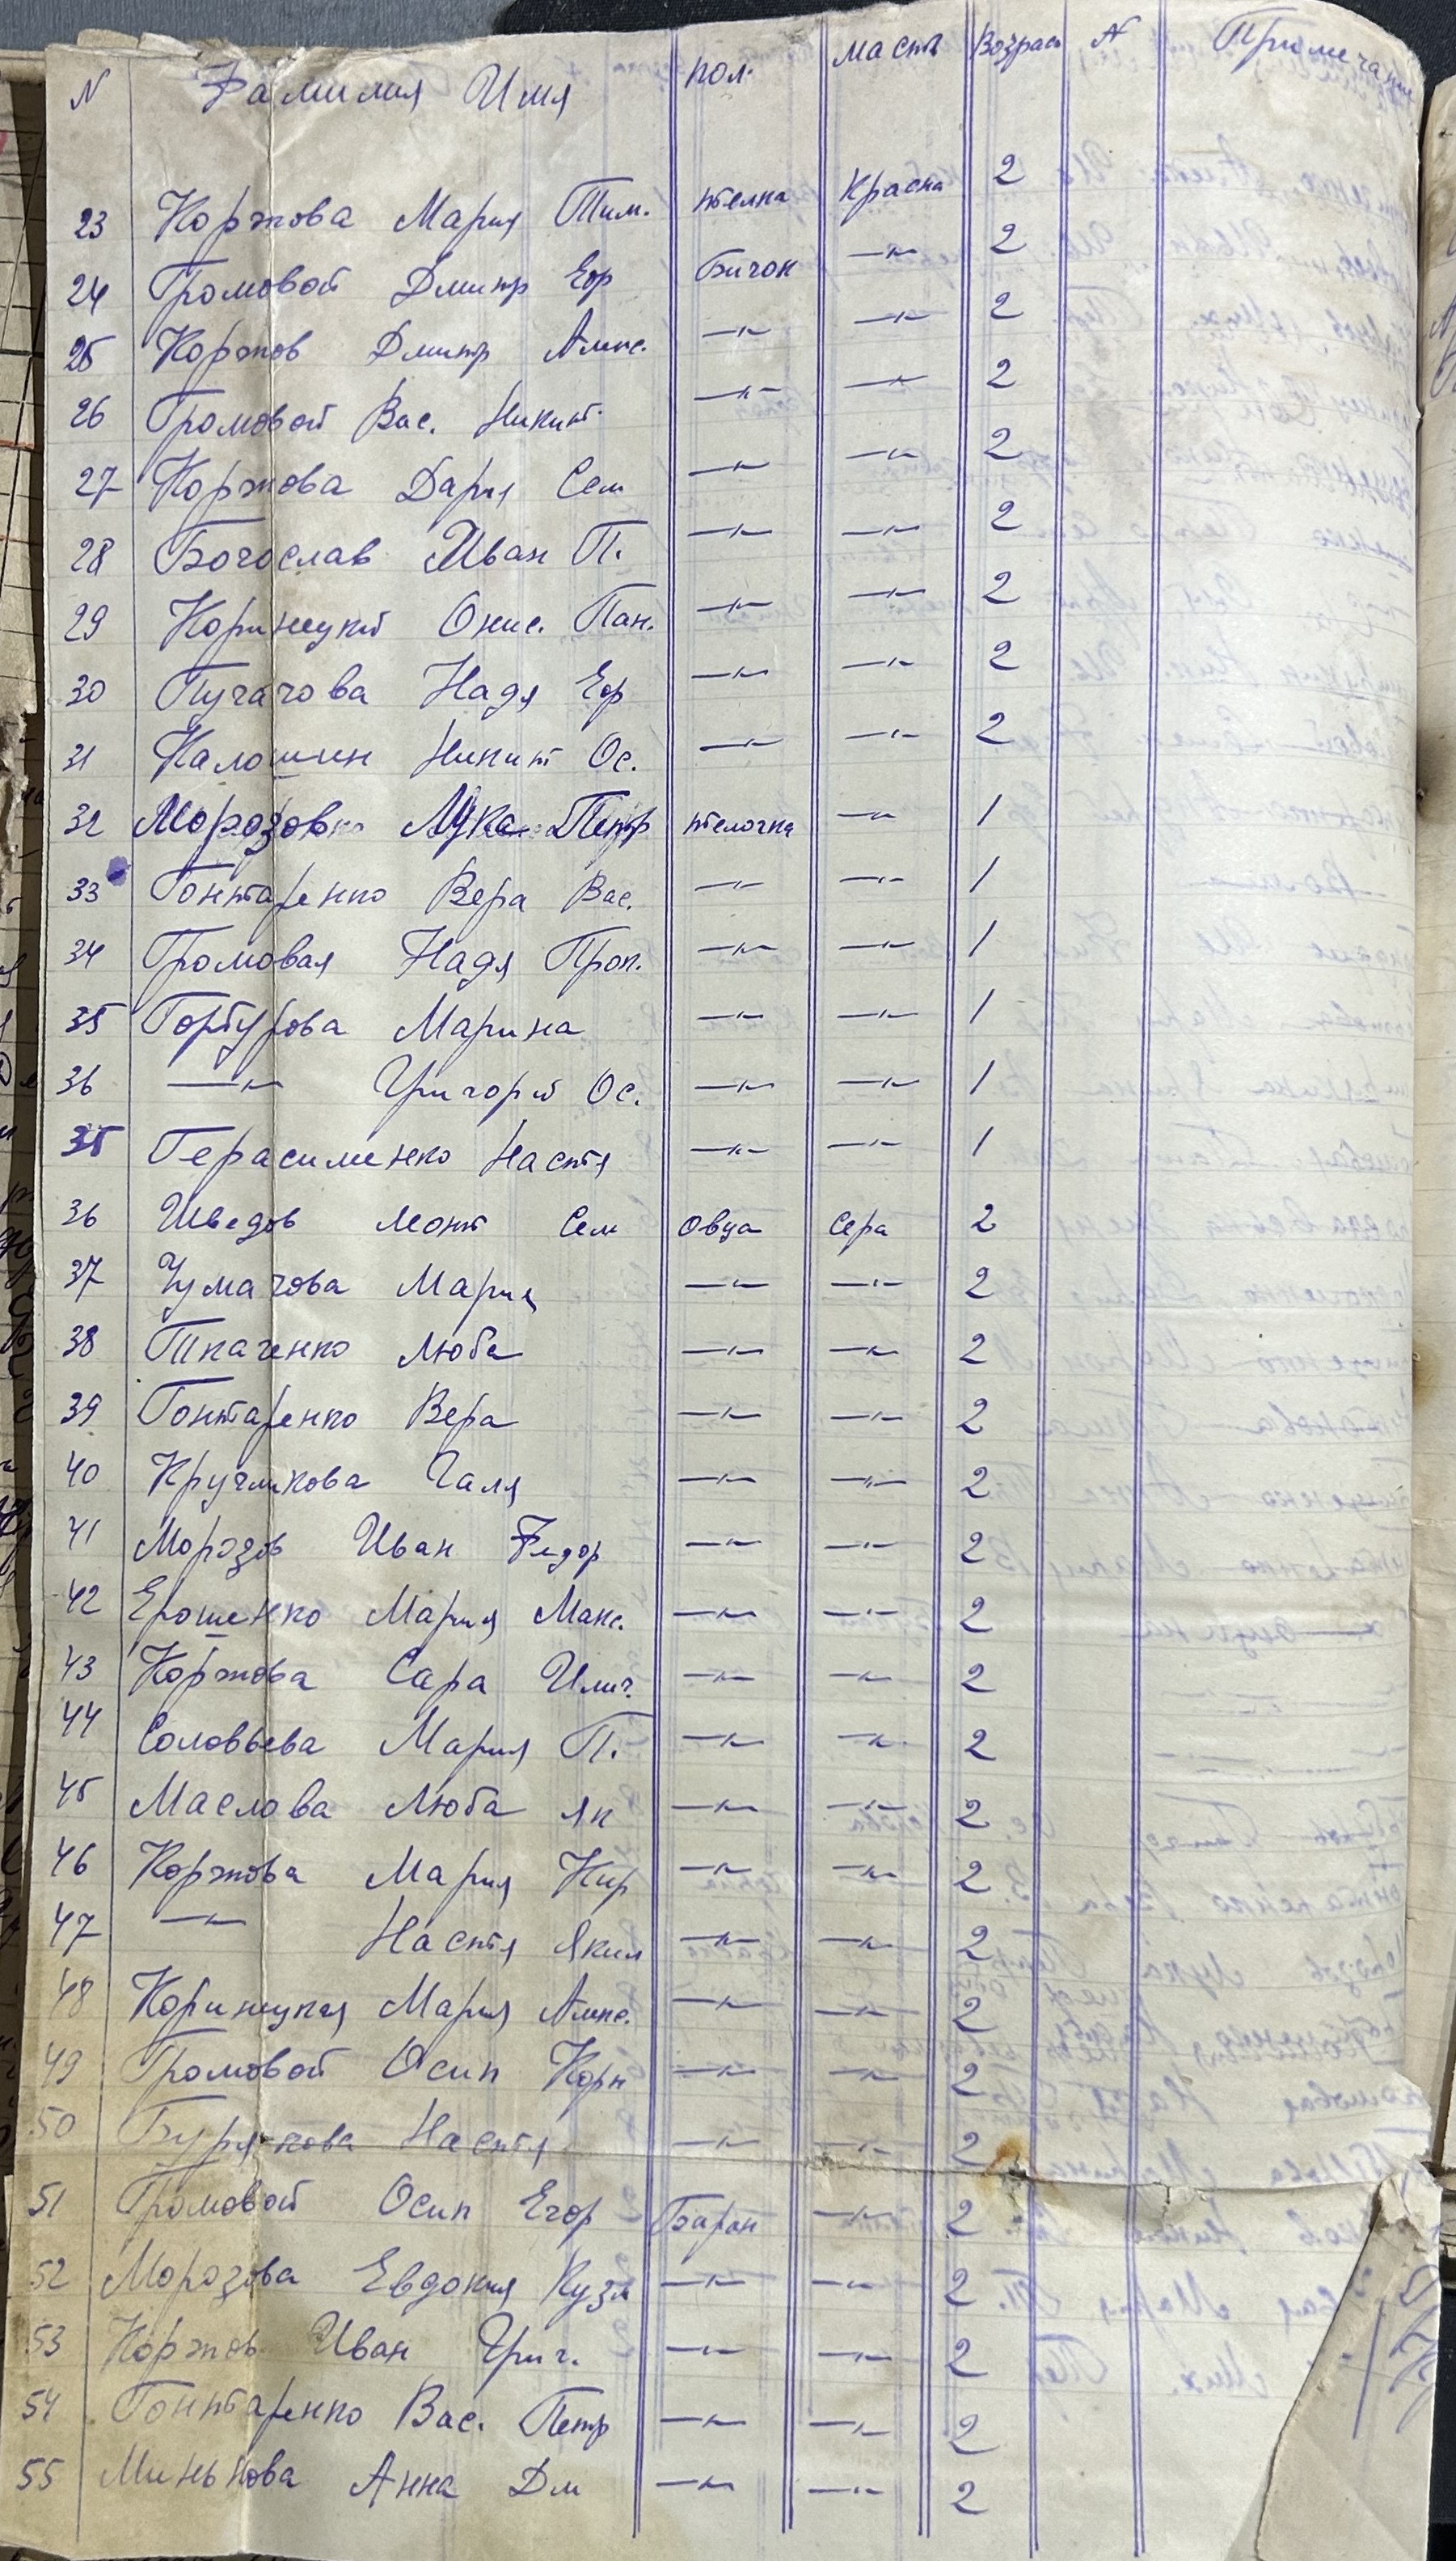 N Фамилия Имя пол. масть Возраст N Примечание
23 Коржова Мария Тим. телка Красна 2
24 Громовой Дмитр Егор Бичок —"— 2
25 Коржов Дмитр Алекс. —"— —"— 2
26 Громовой Вас. Никит. —"— —"— 2
27 Коржова Дария Сем —"— —"— 2
28 Богослав Иван П. —"— —"— 2
29 Кориницкий Онис. Пан. —"— —"— 2
30 Пугачова Надя Егор —"— —"— 2
31 Калошин Никит Ос. —"— —"— 2
32 Морозов Лука Петр телочка —"— 1
33 Гонтаренко Вера Вас. —"— —"— 1
34 Громовая Надя Прок. —"— —"— 1
35 Горбурова Марина —"— —"— 1
36 —"— Григорий Ос. —"— —"— 1
35 Герасименко Настя —"— —"— 1
36 Шведов Леонт Сем овца Сера 2
37 Чумачова Мария —"— —"— 2
38 Ткаченко Люба —"— —"— 2
39 Гонтаренко Вера —"— —"— 2
40 Кручликова Галя —"— —"— 2
41 Морозов Иван Федор —"— —"— 2
42 Ерошенко Мария Макс. —"— —"— 2
43 Коржова Сара Илич. —"— —"— 2
44 Соловьева Мария П. —"— —"— 2
45 Маслова Люба Як —"— —"— 2
46 Коржова Мария Кир —"— —"— 2
47 —"— Настя Яким —"— —"— 2
48 Кориницкая Мария Алекс. —"— —"— 2
49 Громовой Осип Корн —"— —"— 2
50 Бурякова Настя —"— —"— 2
51 Громовой Осип Егор Баран —"— 2
52 Морозова Евдокия Кузм —"— —"— 2
53 Коржов Иван Григ. —"— —"— 2
54 Гонтаренко Вас. Петр —"— —"— 2
55 Минькова Анна Дм —"— —"— 2